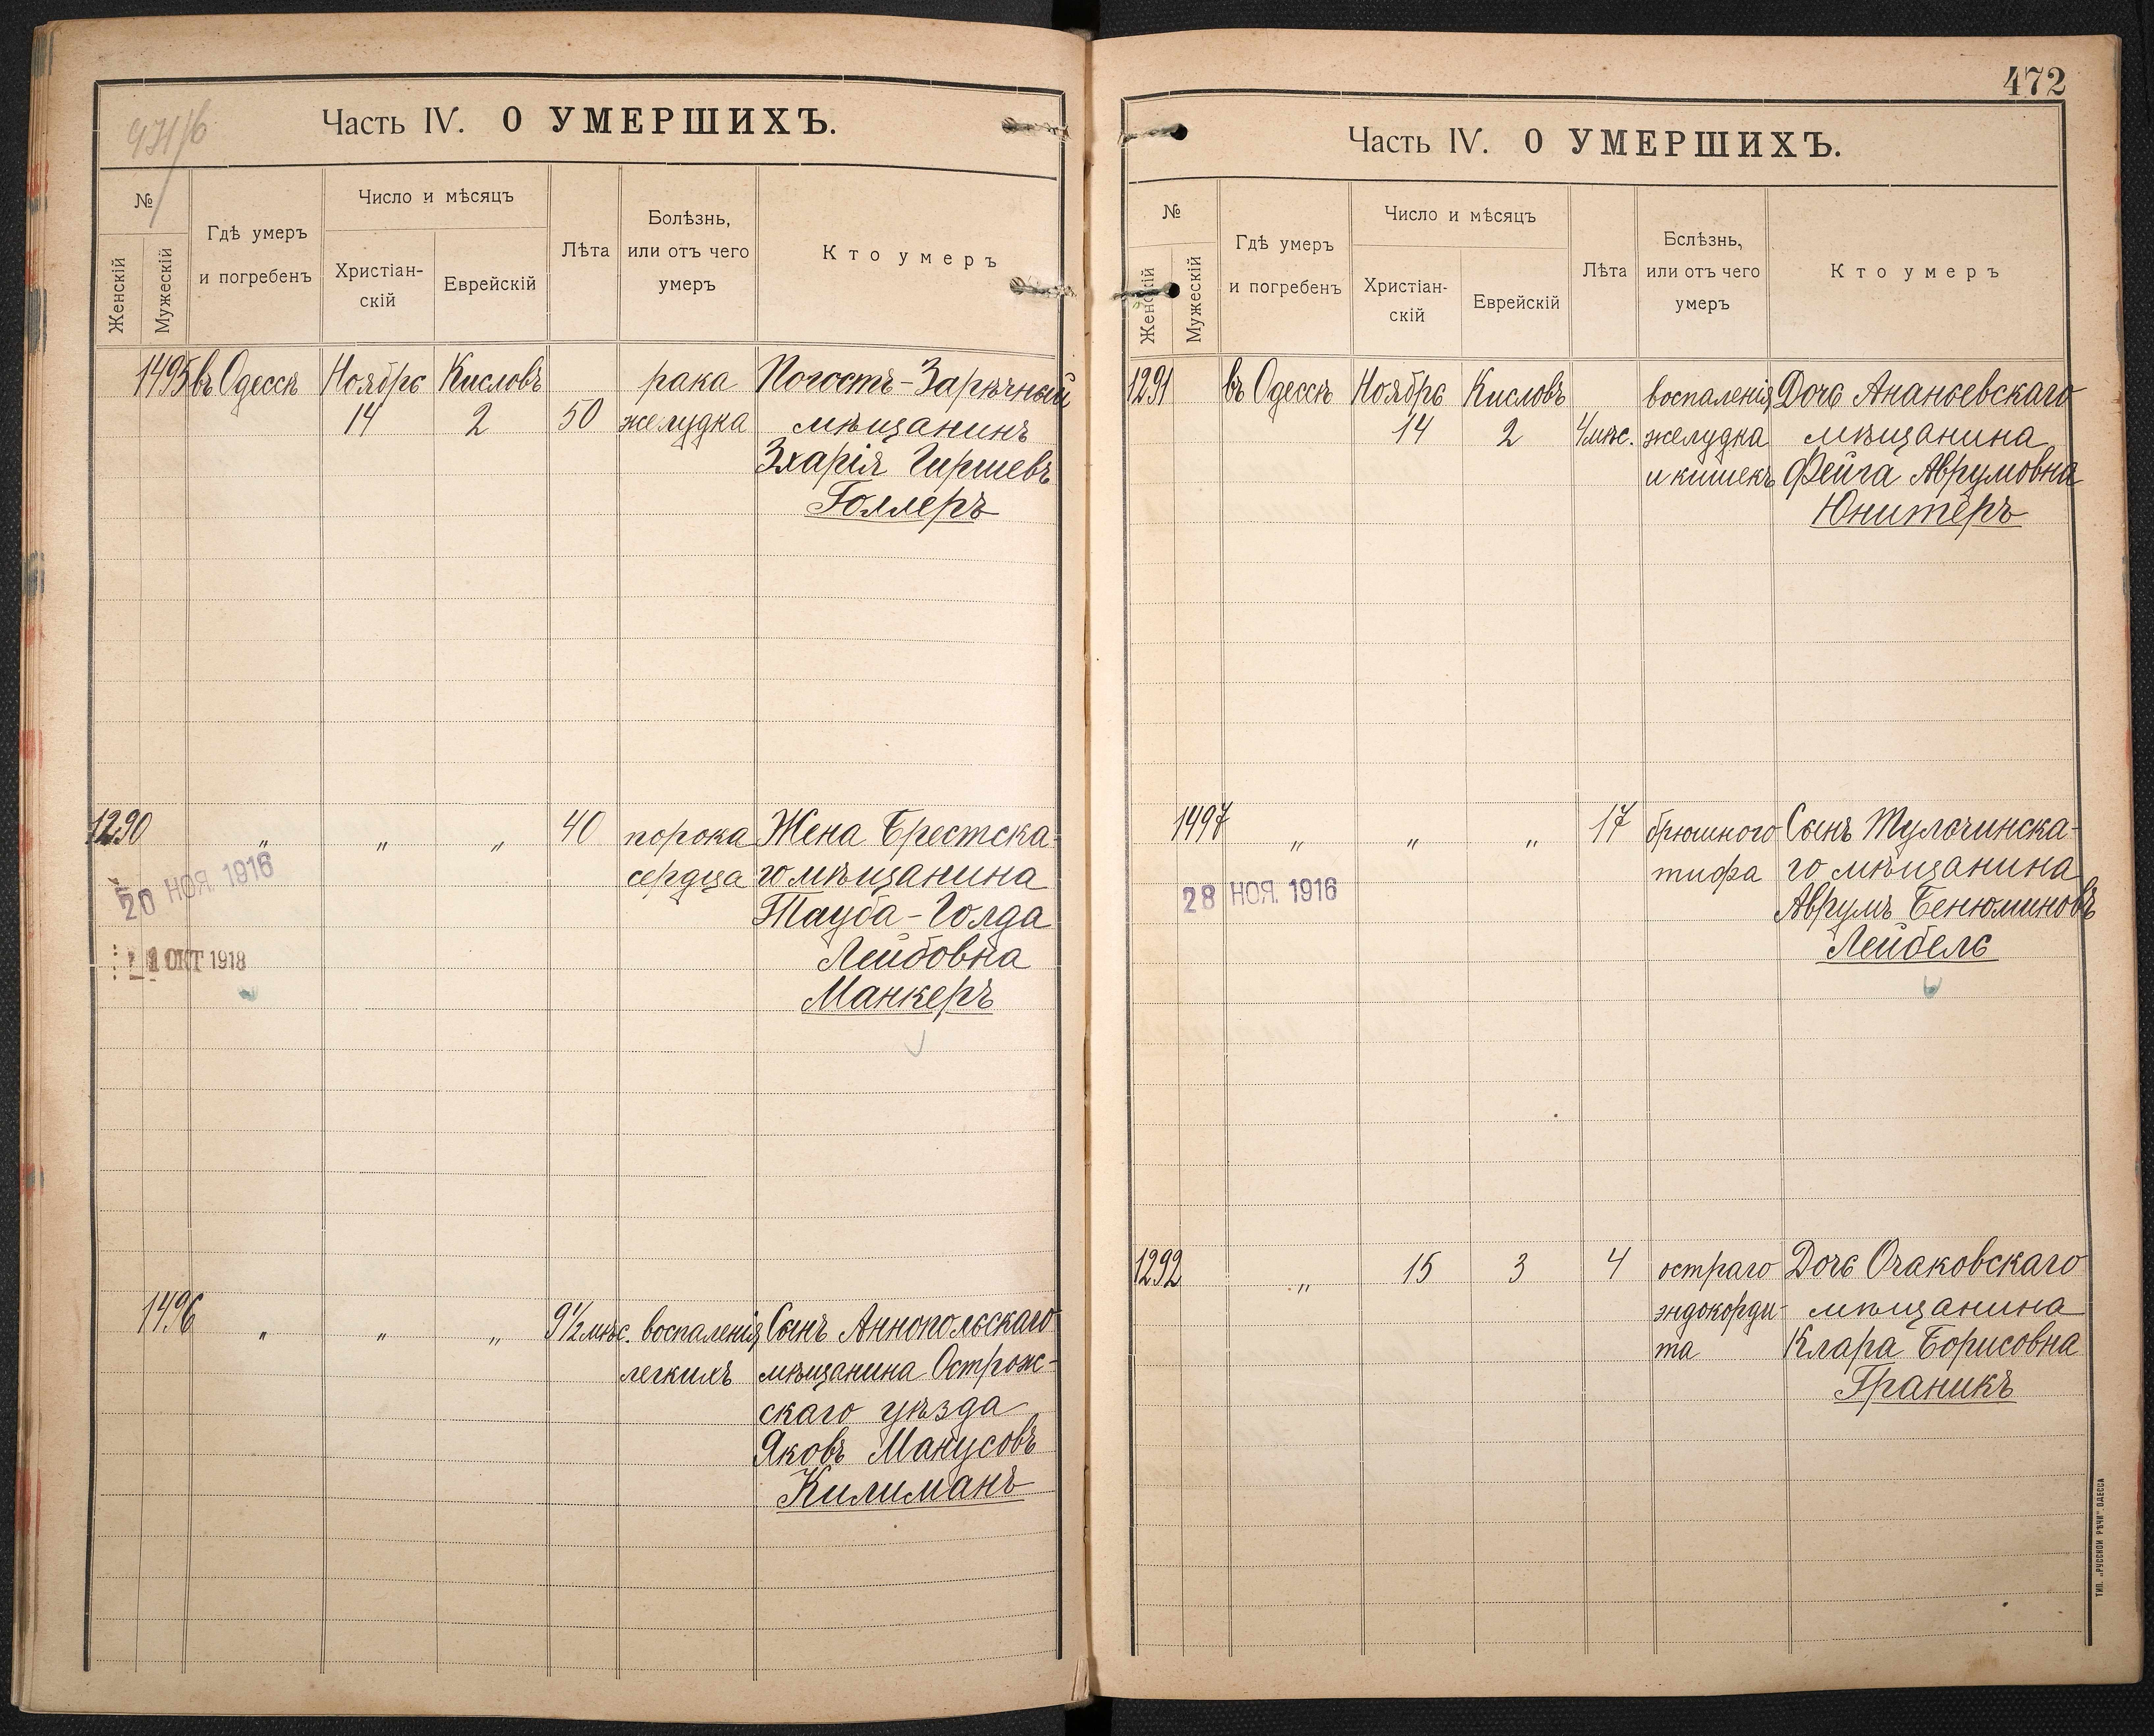 Часть IV. О УМЕРШИХЪ.
№
Женскій
Мужескій
Гдѣ умеръ
и погребенъ
Число и мѣсяцъ
Христіан-
скій
Еврейскій
Лѣта
Болѣзнь,
или отъ чего
умеръ
Кто умеръ
1495 въ Одессѣ Ноябрь Кисловъ рака Погостъ-Зарѣчный
14 2 50 желудка мѣщанинъ
Зхарія Гиршевъ
Голлеръ
1290 „ „ „ 40 порока Жена Брестска-
сердца го мѣщанина
20 НОЯ. 1916
Тауба-Голда
Лейбовна
1 ОКТ 1918
Манкеръ
1496 „ „ „ 9½ мѣс. воспаленія Сынъ Аннопольскаго
легкихъ мѣщанина Острож-
скаго уѣзда
Яковъ Манусовъ
Килиманъ
472
Часть IV. О УМЕРШИХЪ.
№
Женскій
Мужескій
Гдѣ умеръ
и погребенъ
Число и мѣсяцъ
Христіан-
скій
Еврейскій
Лѣта
Бслѣзнь,
или отъ чего
умеръ
Кто умеръ
1291 въ Одессѣ Ноябрь Кисловъ воспаленія Дочь Ананьевскаго
14 2 4 мѣс. желудка мѣщанина
и кишекъ Фейга Аврумовна
Юнитеръ
1497 „ „ „ 17 брюшного Сынъ Тульчинска-
тифа го мѣщанина
28 НОЯ. 1916
Аврумъ Бенюминовъ
Лейбель
1292 „ 15 3 4 остраго Дочь Очаковскаго
эндокорди- мѣщанина
та Клара Борисовна
Граникъ
ТИП. „РУССКОЙ РѢЧИ“ ОДЕССА